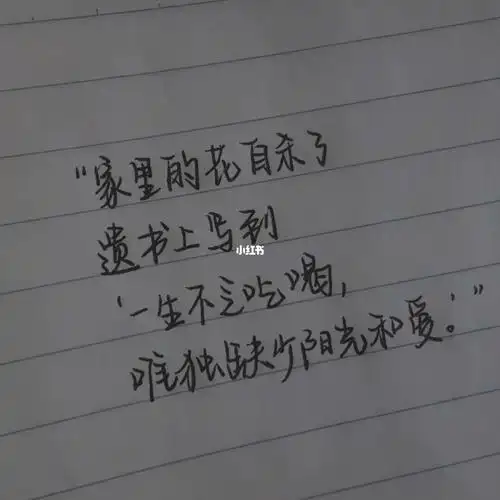 "家里的花自杀了
遗书上写到
小红书
'一生不乏吃喝,
唯独缺少阳光和爱.'"